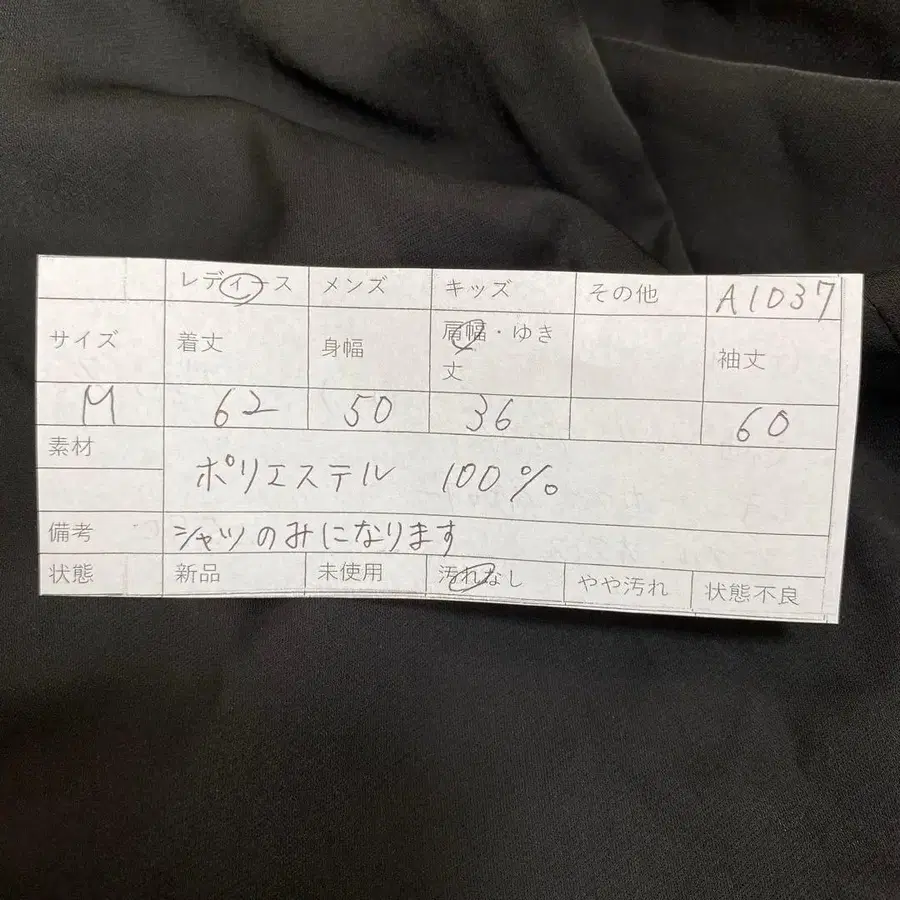 レディース メンズ キッズ その他 A1037
サイズ 着丈 身幅 肩幅・ゆき丈 袖丈
M 62 50 36 60
素材 ポリエステル 100%
備考 シャツのみになります
状態 新品 未使用 汚れなし やや汚れ 状態不良